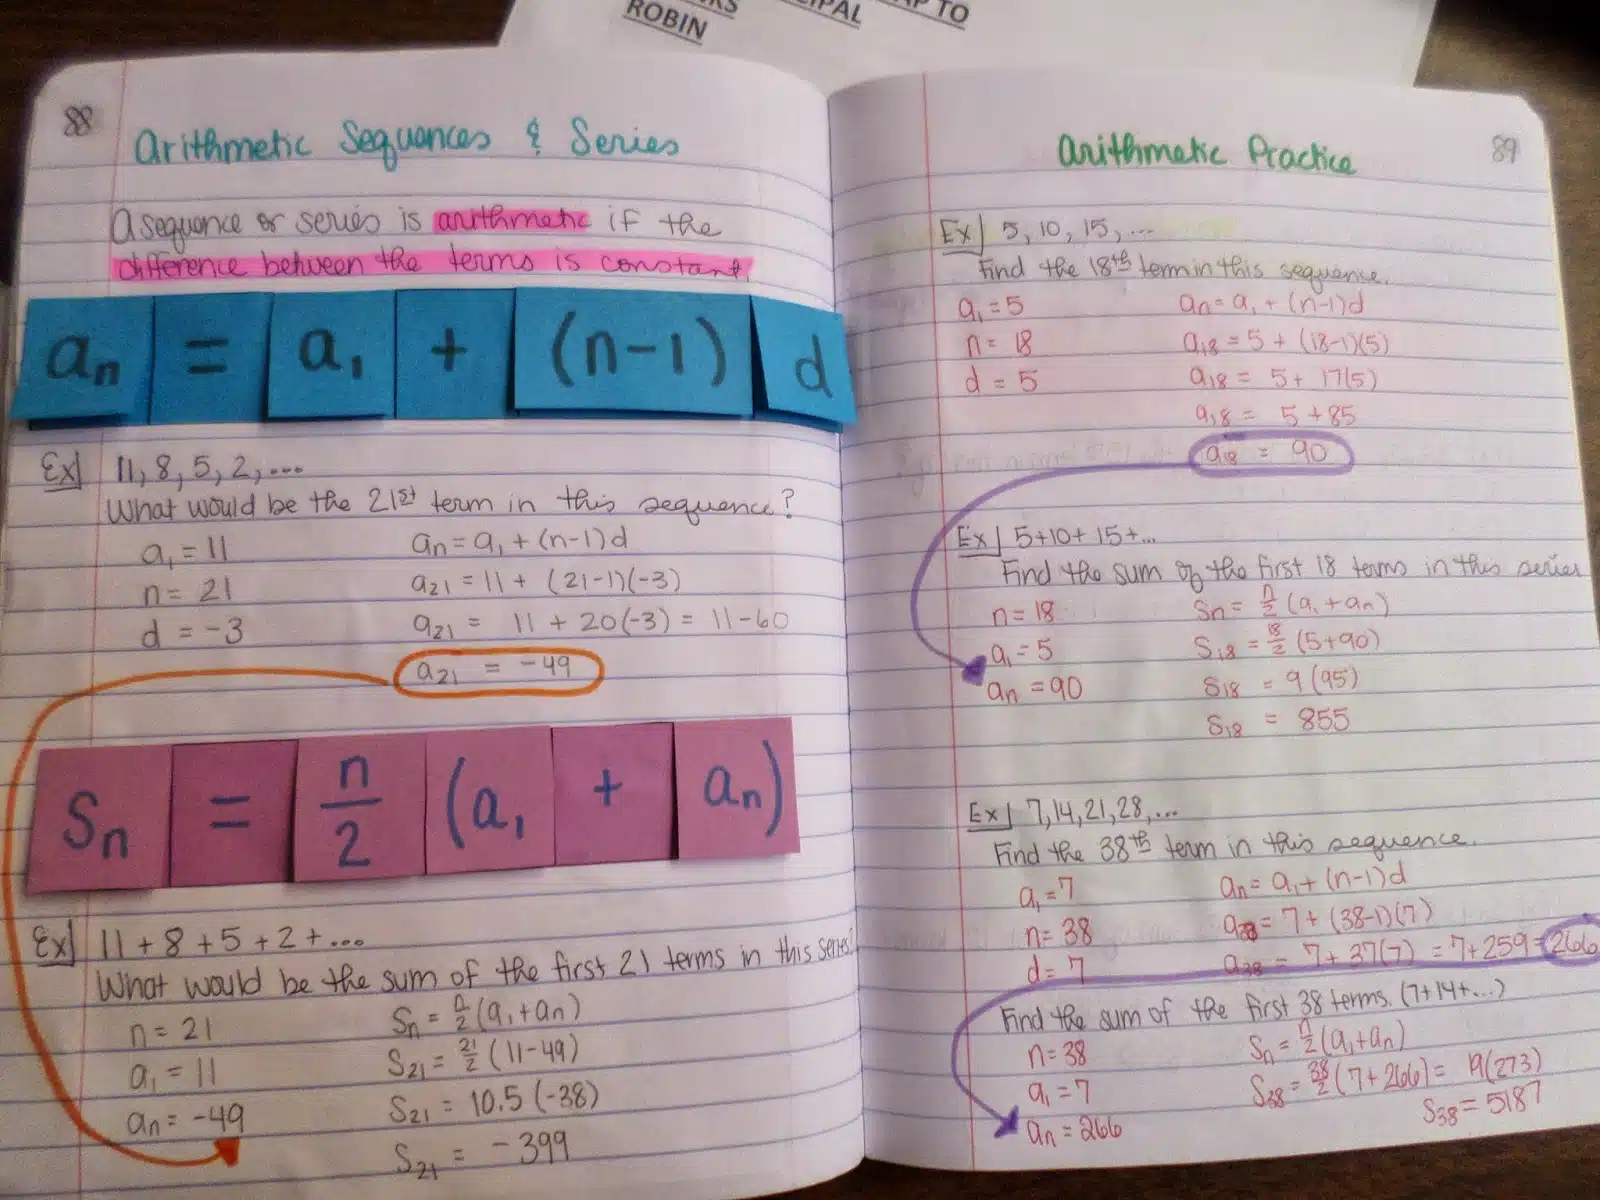 ROBIN
TO
88
Arithmetic Sequences & Series
A sequence or series is arithmetic if the
difference between the terms is constant.
an = a1 + (n-1) d
Ex| 11, 8, 5, 2, ...
What would be the 21st term in this sequence?
a1 = 11
n = 21
d = -3
an = a1 + (n-1)d
a21 = 11 + (21-1)(-3)
a21 = 11 + 20(-3) = 11-60
a21 = -49
Sn = n/2 (a1 + an)
Ex| 11 + 8 + 5 + 2 + ...
What would be the sum of the first 21 terms in this series?
n = 21
a1 = 11
an = -49
Sn = n/2 (a1 + an)
S21 = 21/2 (11-49)
S21 = 10.5 (-38)
S21 = -399
89
Arithmetic Practice
Ex| 5, 10, 15, ...
Find the 18th term in this sequence.
a1 = 5
n = 18
d = 5
an = a1 + (n-1)d
a18 = 5 + (18-1)(5)
a18 = 5 + 17(5)
a18 = 5 + 85
a18 = 90
Ex| 5+10+15+...
Find the sum of the first 18 terms in this series
n = 18
a1 = 5
an = 90
Sn = n/2 (a1 + an)
S18 = 18/2 (5+90)
S18 = 9 (95)
S18 = 855
Ex| 7, 14, 21, 28, ...
Find the 38th term in this sequence.
a1 = 7
n = 38
d = 7
an = a1 + (n-1)d
a38 = 7 + (38-1)(7)
a38 = 7 + 37(7) = 7+259 = 266
Find the sum of the first 38 terms. (7+14+...)
n = 38
a1 = 7
an = 266
Sn = n/2 (a1 + an)
S38 = 38/2 (7+266) = 19(273)
S38 = 5187